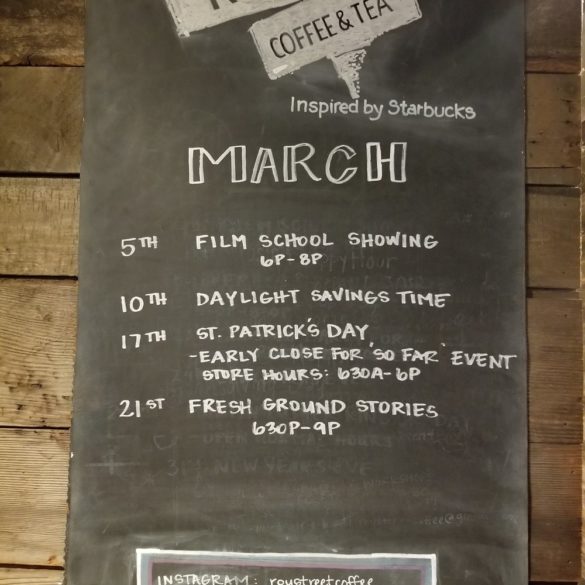 COFFEE & TEA
Inspired by Starbucks
MARCH
5TH FILM SCHOOL SHOWING
6P-8P
10TH DAYLIGHT SAVINGS TIME
17TH ST. PATRICK'S DAY
-EARLY CLOSE FOR 'SO FAR' EVENT
STORE HOURS: 630A-6P
21ST FRESH GROUND STORIES
630P-9P
31ST NEW YEARS EVE
INSTAGRAM: roystreetcoffee